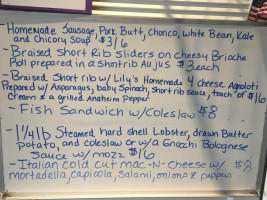 Homemade Sausage, Pork Butt, chorico, white Bean, Kale
and Chicory Soup $3/6
-Braised Short Rib sliders on cheesy Brioche
Roll prepared in a shortrib Au jus $3 each
-Braised Short rib w/ Lily's Homemade 4 cheese Agnoloti
Prepared w/ Asparagus, baby Spinach, short rib sauce, touch of
cream & a grilled Anaheim Pepper $16
- Fish Sandwich w/coleslaw $8
-1 1/4 lb Steamed hard shell Lobster, drawn Butter
Potato, and coleslaw or w/a Gnocchi Bolognese
Sauce w/ mozz $16
-Italian cold cut mac-N-cheese w/ $8
mortadella, capicola, Salami, & peppers